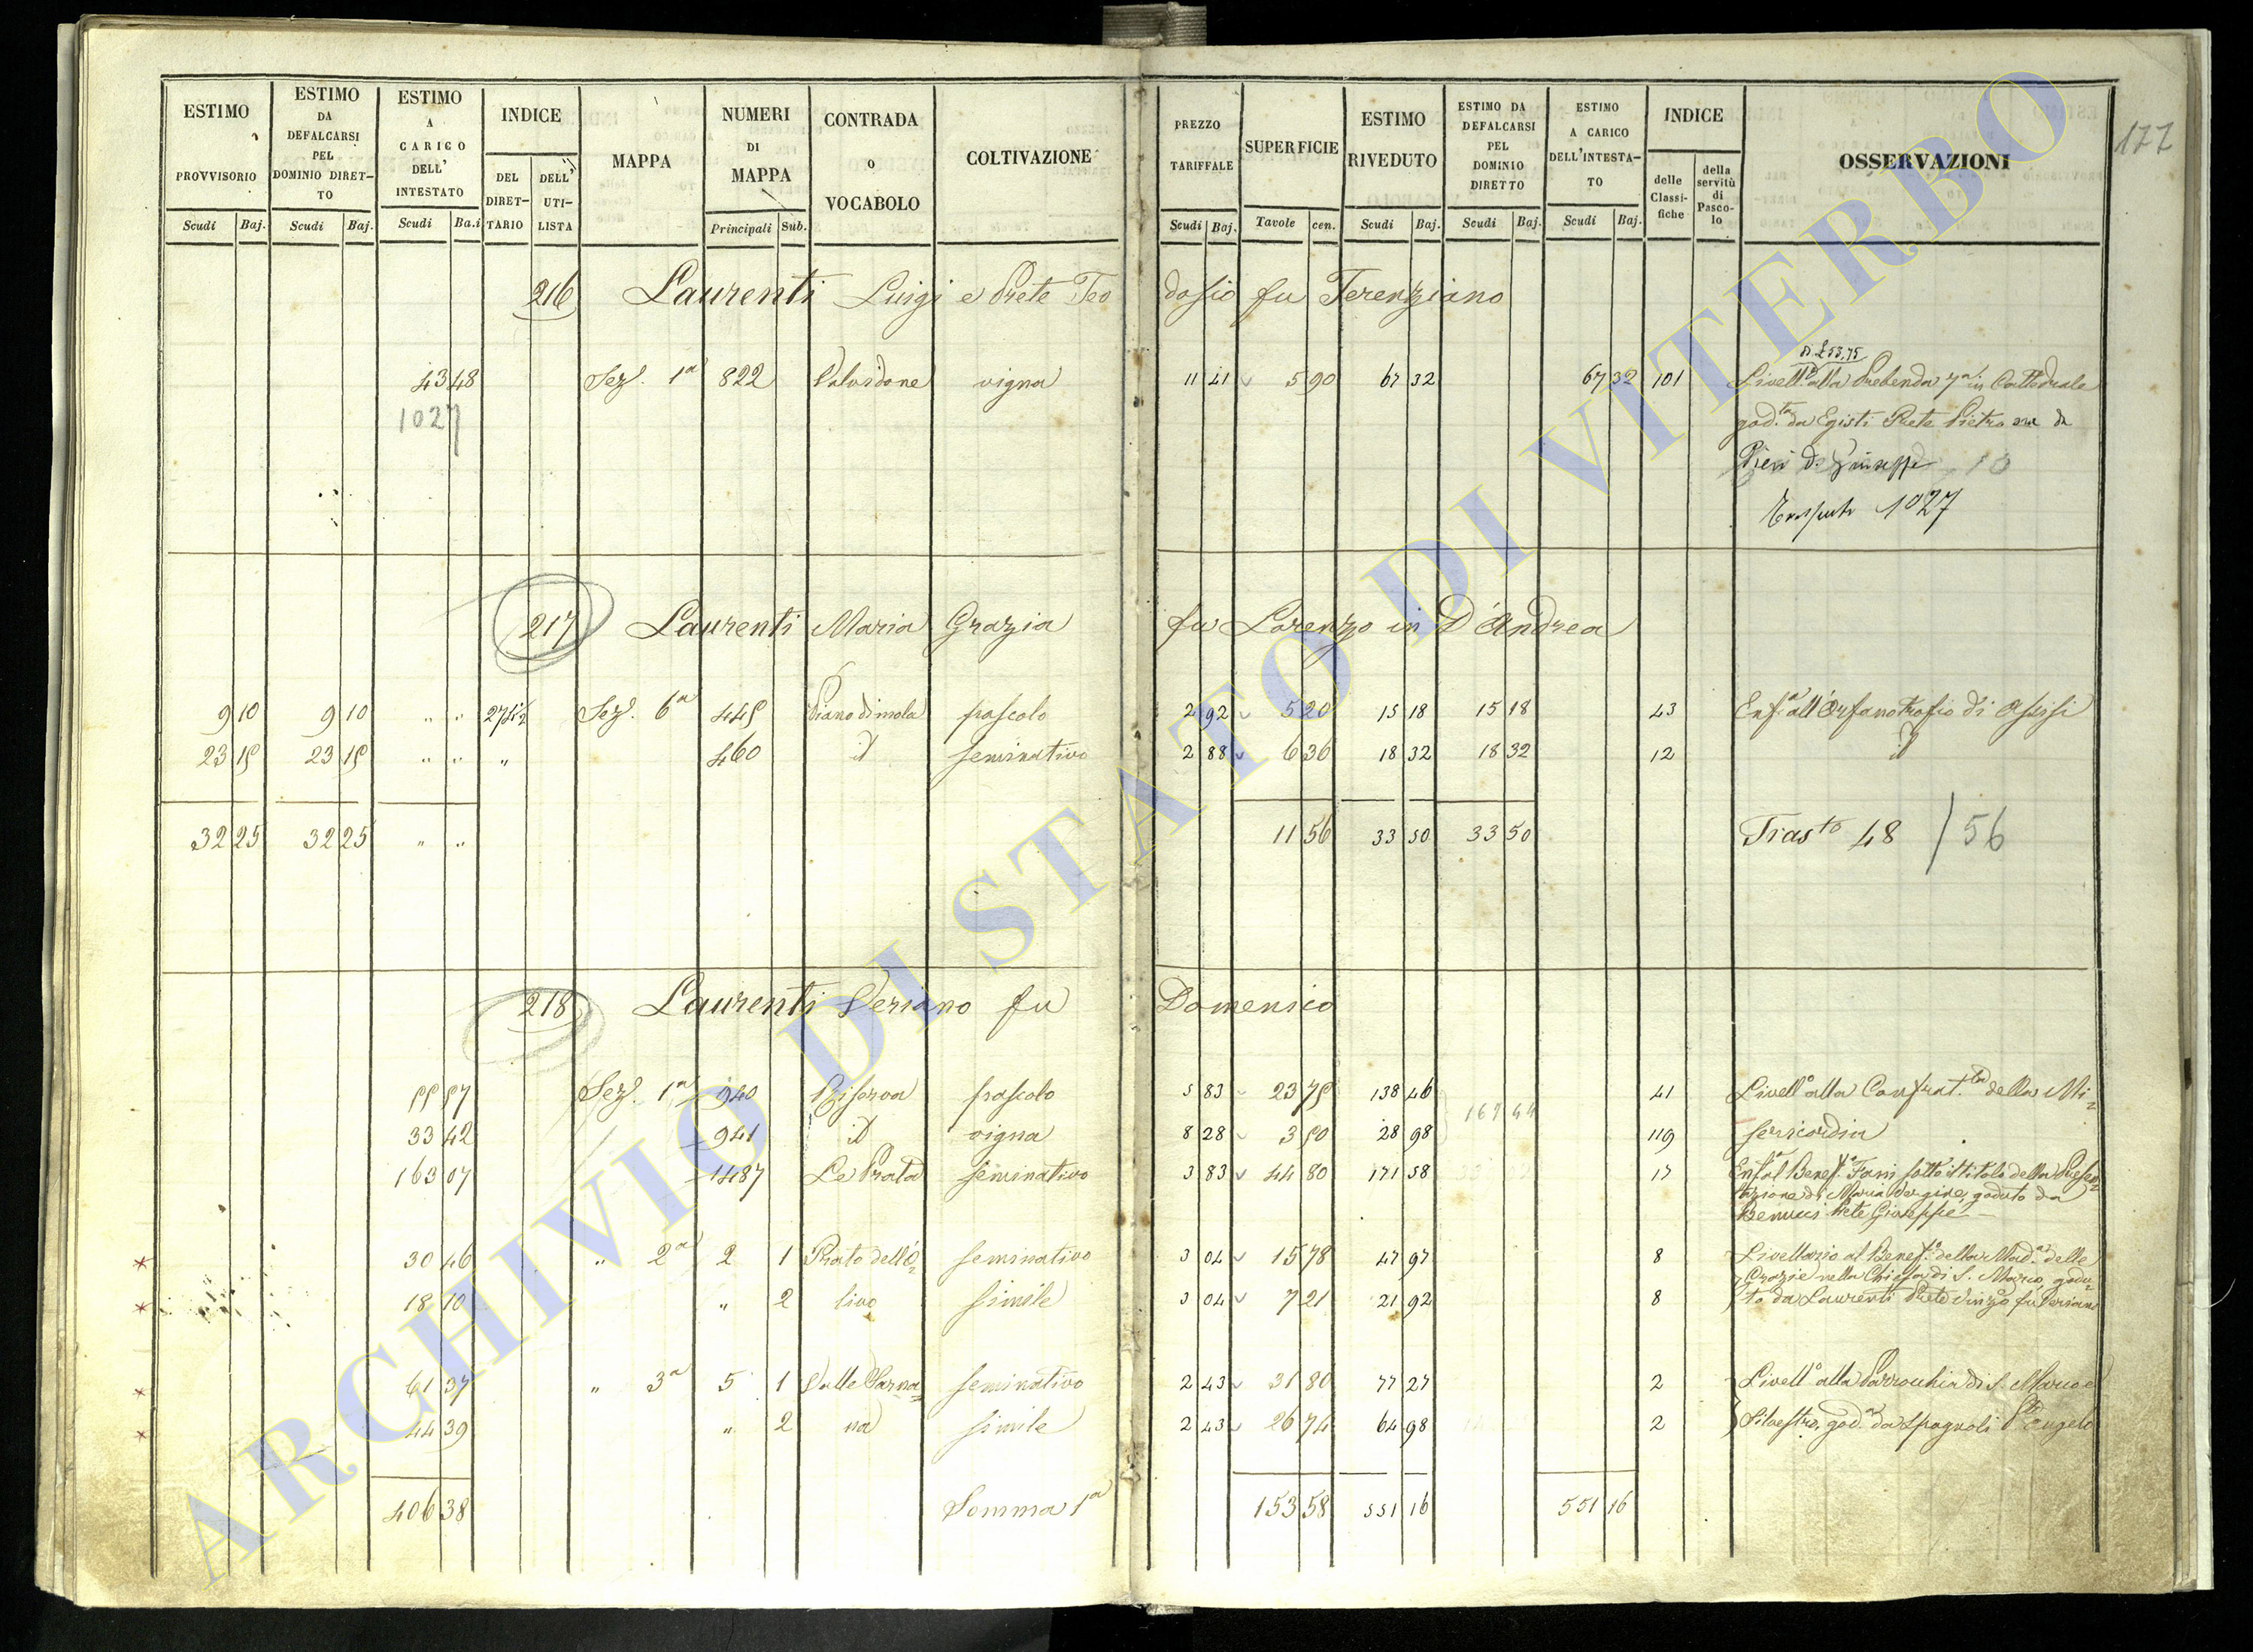 ESTIMO PROVVISORIO
ESTIMO DA DEFALCARSI PEL DOMINIO DIRET-TO
ESTIMO A CARICO DELL' INTESTATO
INDICE
DEL DIRET-TARIO
DELL' UTI-LISTA
MAPPA
NUMERI DI MAPPA
CONTRADA O VOCABOLO
COLTIVAZIONE
PREZZO TARIFFALE
SUPERFICIE
ESTIMO RIVEDUTO
ESTIMO DA DEFALCARSI PEL DOMINIO DIRETTO
ESTIMO A CARICO DELL'INTESTA-TO
INDICE
delle Classi-fiche
della servitù di Pasco-lo
OSSERVAZIONI
177
Scudi Baj. Scudi Baj. Scudi Ba.i Principali Sub. Scudi Baj. Tavole cen. Scudi Baj. Scudi Baj. Scudi Baj.
216 Laurenti Luigi e Prete Teo dosio fu Terenziano
di £ 53,75
43 48 Sez. 1a 822 Valvidone vigna 11 41 5 90 67 32 67 32 101 Livell.o alla Prebenda 7a in Cattedrale
1027 god.ta da Egisti Prete Pietro ora da
Pieri D. Giuseppe
1027
217 Laurenti Maria Grazia fu Lorenzo in D'Andrea
9 10 9 10 " " Sez. 6a 445 Piano di mola pascolo 2 92 5 20 15 18 15 18 43 Enf.a all'Orfanotrofio di Assisi
23 15 23 15 " " " 460 id seminativo 2 88 6 36 18 32 18 32 12 id
32 25 32 25 " " 11 56 33 50 33 50 Trasto 48 / 56
218 Laurenti Veriano fu Domenico
55 57 Sez. 1a 940 Riserva pascolo 5 83 23 75 138 46 41 Livell.o alla Confrat.ta della Mi=
167 44
33 42 941 id vigna 8 28 3 50 28 98 119 sericordia
163 07 1487 Le Prata seminativo 3 83 44 80 171 58 17 Enf.a al Benef.o Fani sotto il titolo della Presen=
tazione di Maria Vergine, goduto da
Benucci Prete Giuseppe
30 46 " 2a 2 1 Prato dell'O= seminativo 3 04 15 78 47 97 8 Livellario al Benef.o della Mad.a delle
Grazie nella Chiesa di S. Marco, godu=
18 10 " 2 livo simile 3 04 7 21 21 92 8 to da Laurenti Prete Vinzo fu Veriano
61 37 " 3a 5 1 Valle Sarna= seminativo 2 43 31 80 77 27 2 Livell.o alla Parrocchia di S. Marco e
44 39 " 2 na simile 2 43 26 74 64 98 2 Silvestro, god.a da Spagnoli P.e Angelo
406 38 Somma 1a 153 58 551 16 551 16
ARCHIVIO DI STATO DI VITERBO